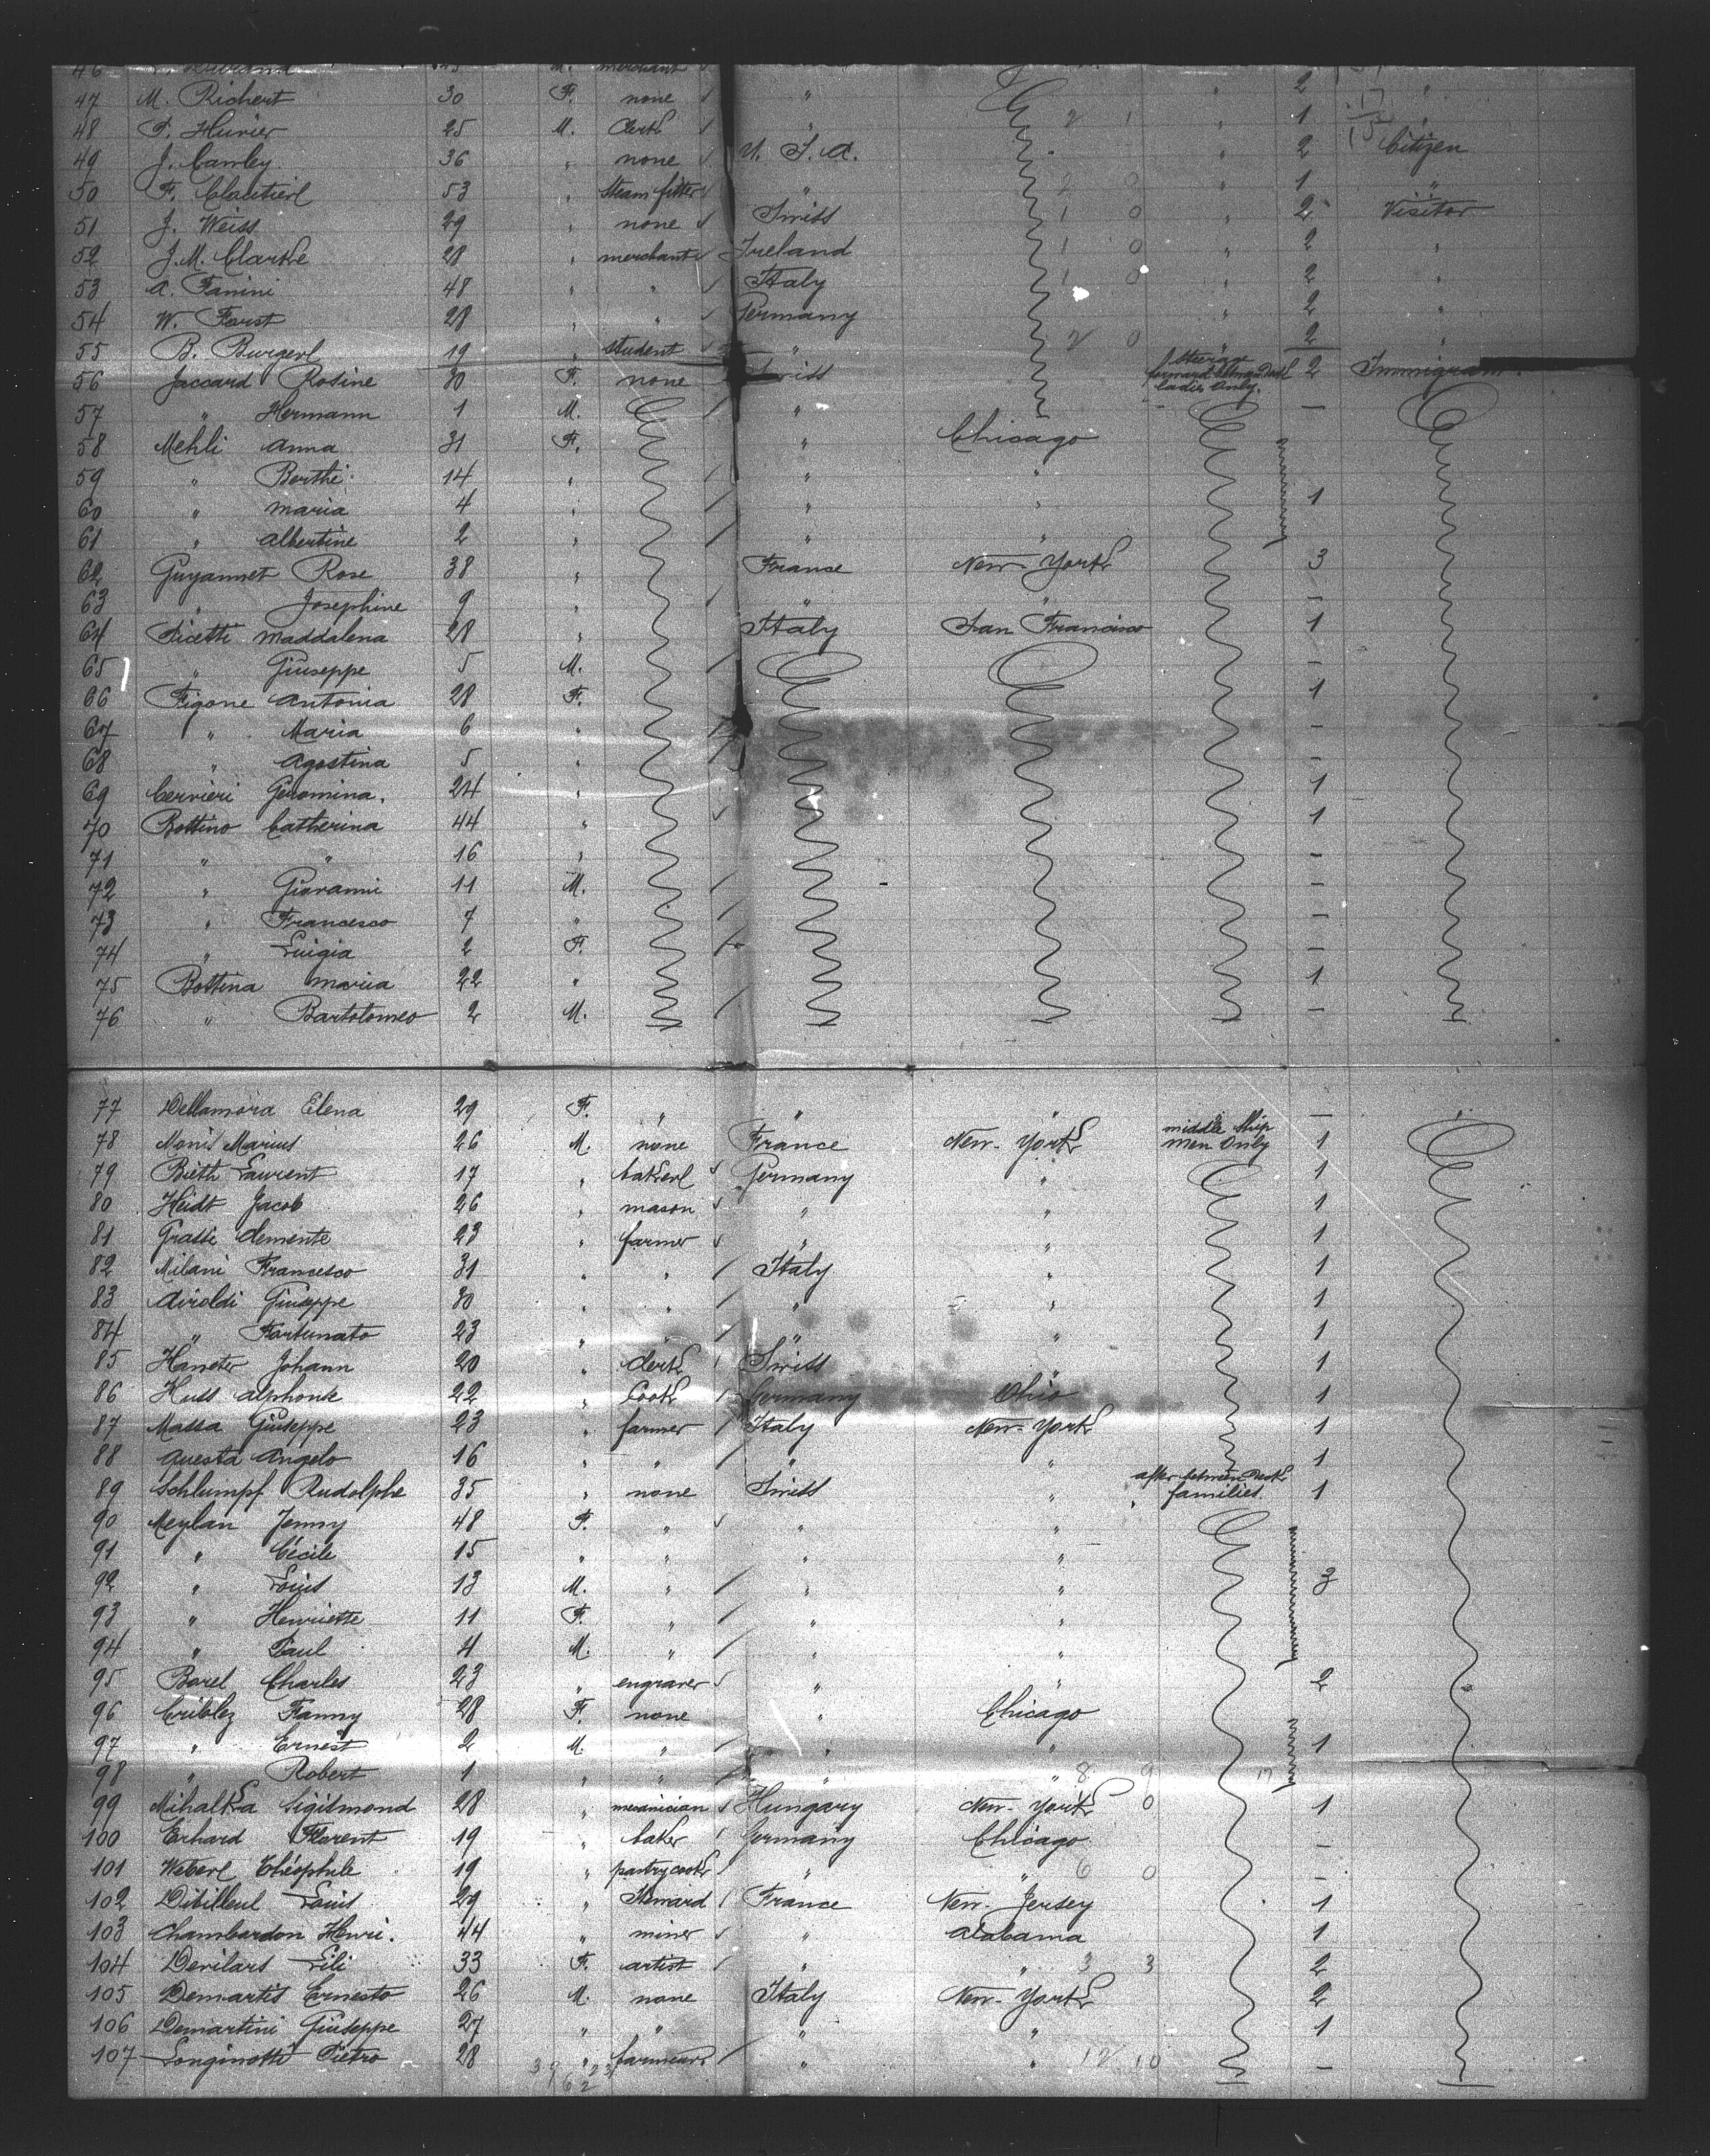 46 merchant
47 M. Richert 30 F. none " " 2 "
48 F. Hurier 25 M. Clerk " " 1 "
49 J. Cawley 36 " none U. S. A. " 2 Citizen
50 F. 53 " Steam fitter " " 1 "
51 J. Weiss 29 " none Swiss " 2 Visitor
52 J. M. Clarke 28 " merchant Ireland " 2 "
53 A. Fanini 48 " " Italy " 2 "
54 W. Forst 28 " " Germany " 2 "
55 B. Burgerl 19 " student " " 2 "
56 Jaccard Rosine 30 F. none Swiss Steerage forward between Deck ladies Only. 2 Immigrant
57 " Hermann 1 M. " —
58 Mehli Anna 31 F. " Chicago
59 " Berthe 14 " " "
60 " Maria 4 " " " 1
61 " Albertine 2 " " "
62 Guyannet Rose 38 " France New-York 3
63 " Josephine 9 " " " –
64 Picetti Maddalena 28 " Italy San Francisco 1
65 " Giuseppe 5 M. –
66 Figone Antonia 28 F. 1
67 " Maria 6 " –
68 " Agostina 5 " –
69 Cervieri Geromina. 24 " 1
70 Bottino Catherina 44 " 1
71 " " 16 " –
72 " Giovanni 11 M. –
73 " Francesco 7 " –
74 " Luigia 2 F. –
75 Bottina Maria 22 " 1
76 " Bartolomeo 2 M. –
77 Dellamora Elena 29 F. " " " " — "
78 Monis Marius 26 M. none France New-York middle Ship men Only 1
79 Bieth Laurent 17 " bakerl Germany " 1
80 Heidt Jacob 26 " mason " " 1
81 Grassi Clemente 23 " farmer " " 1
82 Milani Francesco 31 " " Italy " 1
83 Airoldi Giuseppe 30 " " " " 1
84 " Fortunato 23 " " " " 1
85 Johann 20 " clerk Swiss " 1
86 Huss Alphonse 22 " Cook Germany Ohio 1
87 Massa Giuseppe 23 " farmer Italy New-York 1
88 Questa Angelo 16 " " " " 1
89 Schlumpf Rudolphe 35 " none Swiss " after between Deck families. 1
90 Meylan Jenny 48 F. " " "
91 " Cécile 15 " " " "
92 " Louis 13 M. " " " 3
93 " Henriette 11 F. " " "
94 " Paul 4 M. " " "
95 Borel Charles 23 " engraver " " 2
96 Criblez Fanny 28 F. none " Chicago
97 " Ernest 2 M. " " " 1
98 " Robert 1 " " " " 8 9 17
99 Mihalka Sigismond 28 " mecanician Hungary New-York 0 1
100 Erhard Florent 19 " baker Germany Chicago –
101 Weberl Théophile 19 " pastrycook " " 6 0 –
102 Dibilleul Louis 29 " Steward France New-Jersey 1
103 Chambardon Henri. 44 " miner " Alabama 1
104 Devilars Lili 33 F. artist " " 3 3 2
105 Demartis Ernesto 26 M. none Italy New-York 2
106 Demartini Giuseppe 27 " " " " 1
107 Longinotti Pietro 28 " " " 12 10 –